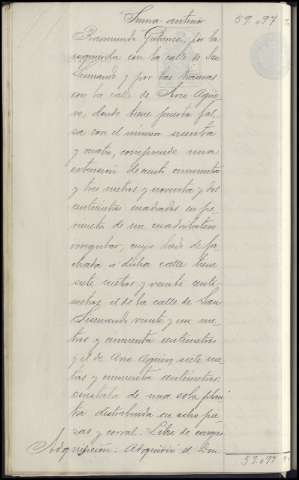 Suma anterior 59.97
Raimundo por la
izquierda con la calle de San
Fernando y por las traseras
con la calle de Arco Agüe-
ro, donde tiene puerta fal-
sa con el número sesenta
y cuatro, comprende una
extensión de ciento cincuenta
y tres metros y noventa y dos
centímetros cuadrados en pe-
rímetro de un cuadrilátero
irregular, cuyo lado de fa-
chada a dicha calle tiene
siete metros y veinte centí-
metros, el de la calle de San
Fernando veinte y un me-
tros y cincuenta centímetros
y el de Arco Agüero siete me-
tros y cincuenta centímetros:
consta de una sola plan-
ta distribuida en ocho pie-
zas y corral. Libre de cargas
Adquisición. Adquirió D.
59.97